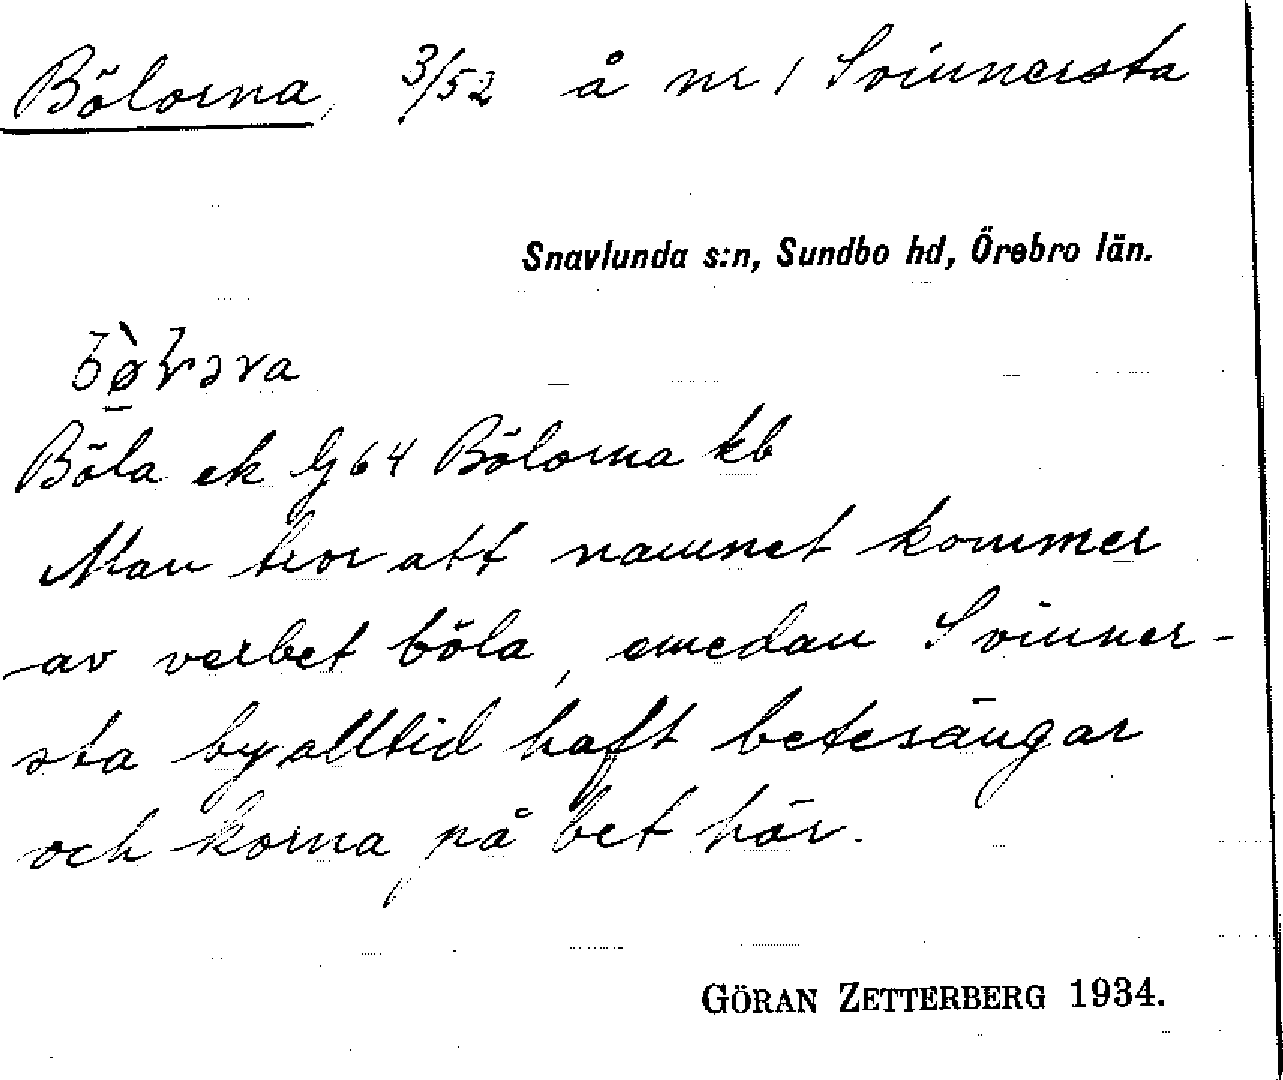 Bölorna, 3/52 å nr 1 Svinnersta
Snavlunda s:n, Sundbo hd, Örebro län.
Böla ek Lj 64 Bölorna kb
Man tror att namnet kommer
av verbet böla, emedan Svinner-
sta by alltid haft betesängar
och korna på bet här.
GÖRAN ZETTERBERG 1934.